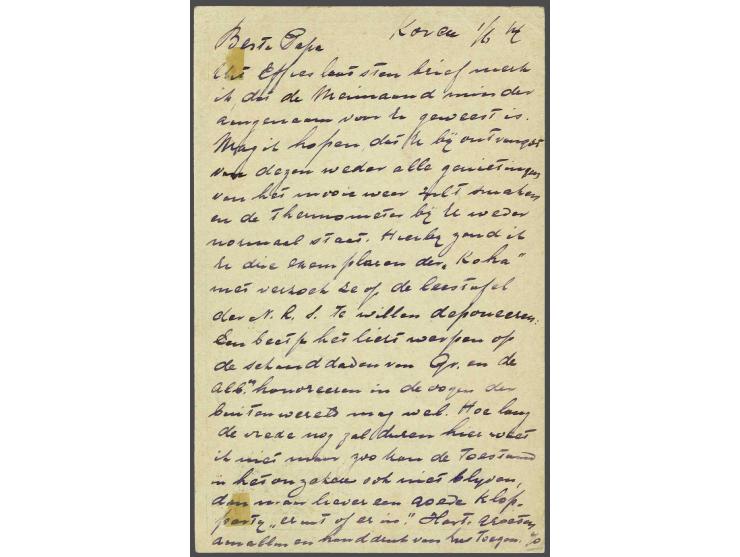 Beste Papa Korea 1/6 14
Uit Effies laatsten brief merk
ik, dat de Meimaand minder
aangenaam voor U geweest is.
Mag ik hopen, dat U bij ontvangst
van dezen weder alle genietingen
van het mooie weer zult smaken
en de thermometer bij U weder
normaal staat. Hierbij zend ik
U drie exemplaren der „Koha"
met verzoek ze op de leestafel
der N. R. S. te willen deponeeren:
Een beetje het licht werpen op
de schanddaden van Gr. en de
Alb. honoreeren in de oogen der
buitenwereld mag wel. Hoe lang
de vrede nog zal duren hier weet
ik niet maar zoo kan de toestand
in het onzekere ook niet blijven,
dan maar liever een goede klop-
partij „er uit of er in." Hart. groeten
aan allen en handdruk van Uw toegen.